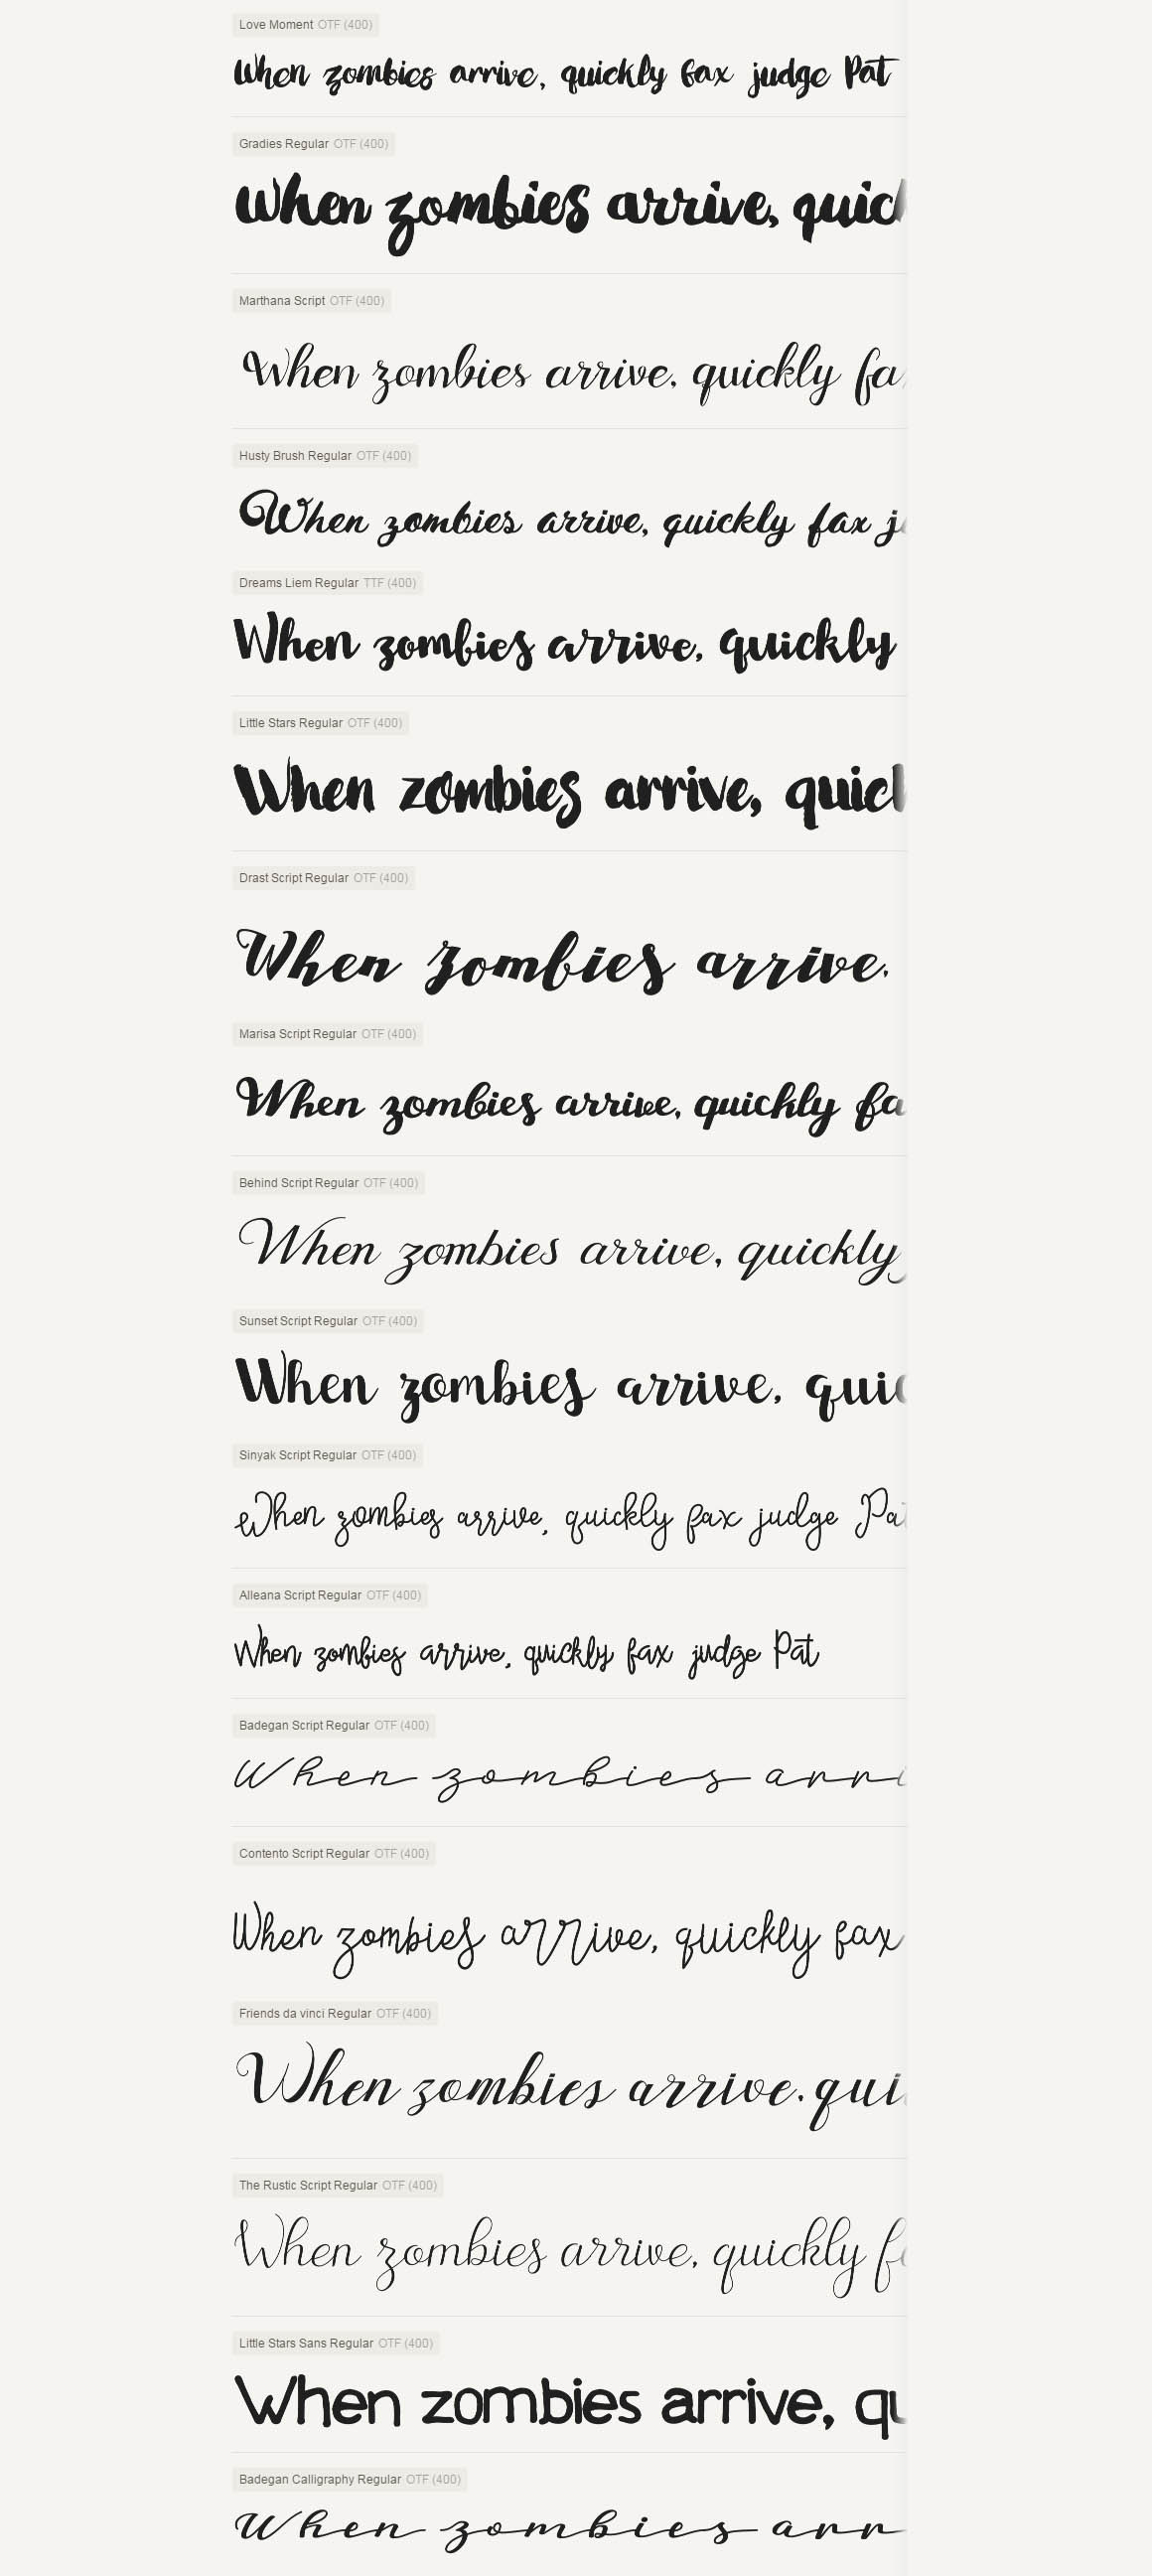 Love Moment OTF (400)
When zombies arrive, quickly fax judge Pat
Gradies Regular OTF (400)
When zombies arrive, quick
Marthana Script OTF (400)
When zombies arrive, quickly fax
Husty Brush Regular OTF (400)
When zombies arrive, quickly fax j
Dreams Liem Regular TTF (400)
When zombies arrive, quickly
Little Stars Regular OTF (400)
When zombies arrive, quick
Drast Script Regular OTF (400)
When zombies arrive,
Marisa Script Regular OTF (400)
When zombies arrive, quickly fa
Behind Script Regular OTF (400)
When zombies arrive, quickly
Sunset Script Regular OTF (400)
When zombies arrive, quic
Sinyak Script Regular OTF (400)
When zombies arrive, quickly fax judge Pat
Alleana Script Regular OTF (400)
When zombies arrive, quickly fax judge Pat
Badegan Script Regular OTF (400)
When zombies arri
Contento Script Regular OTF (400)
When zombies arrive, quickly fax
Friends da vinci Regular OTF (400)
When zombies arrive, qui
The Rustic Script Regular OTF (400)
When zombies arrive, quickly f
Little Stars Sans Regular OTF (400)
When zombies arrive, qu
Badegan Calligraphy Regular OTF (400)
When zombies arr